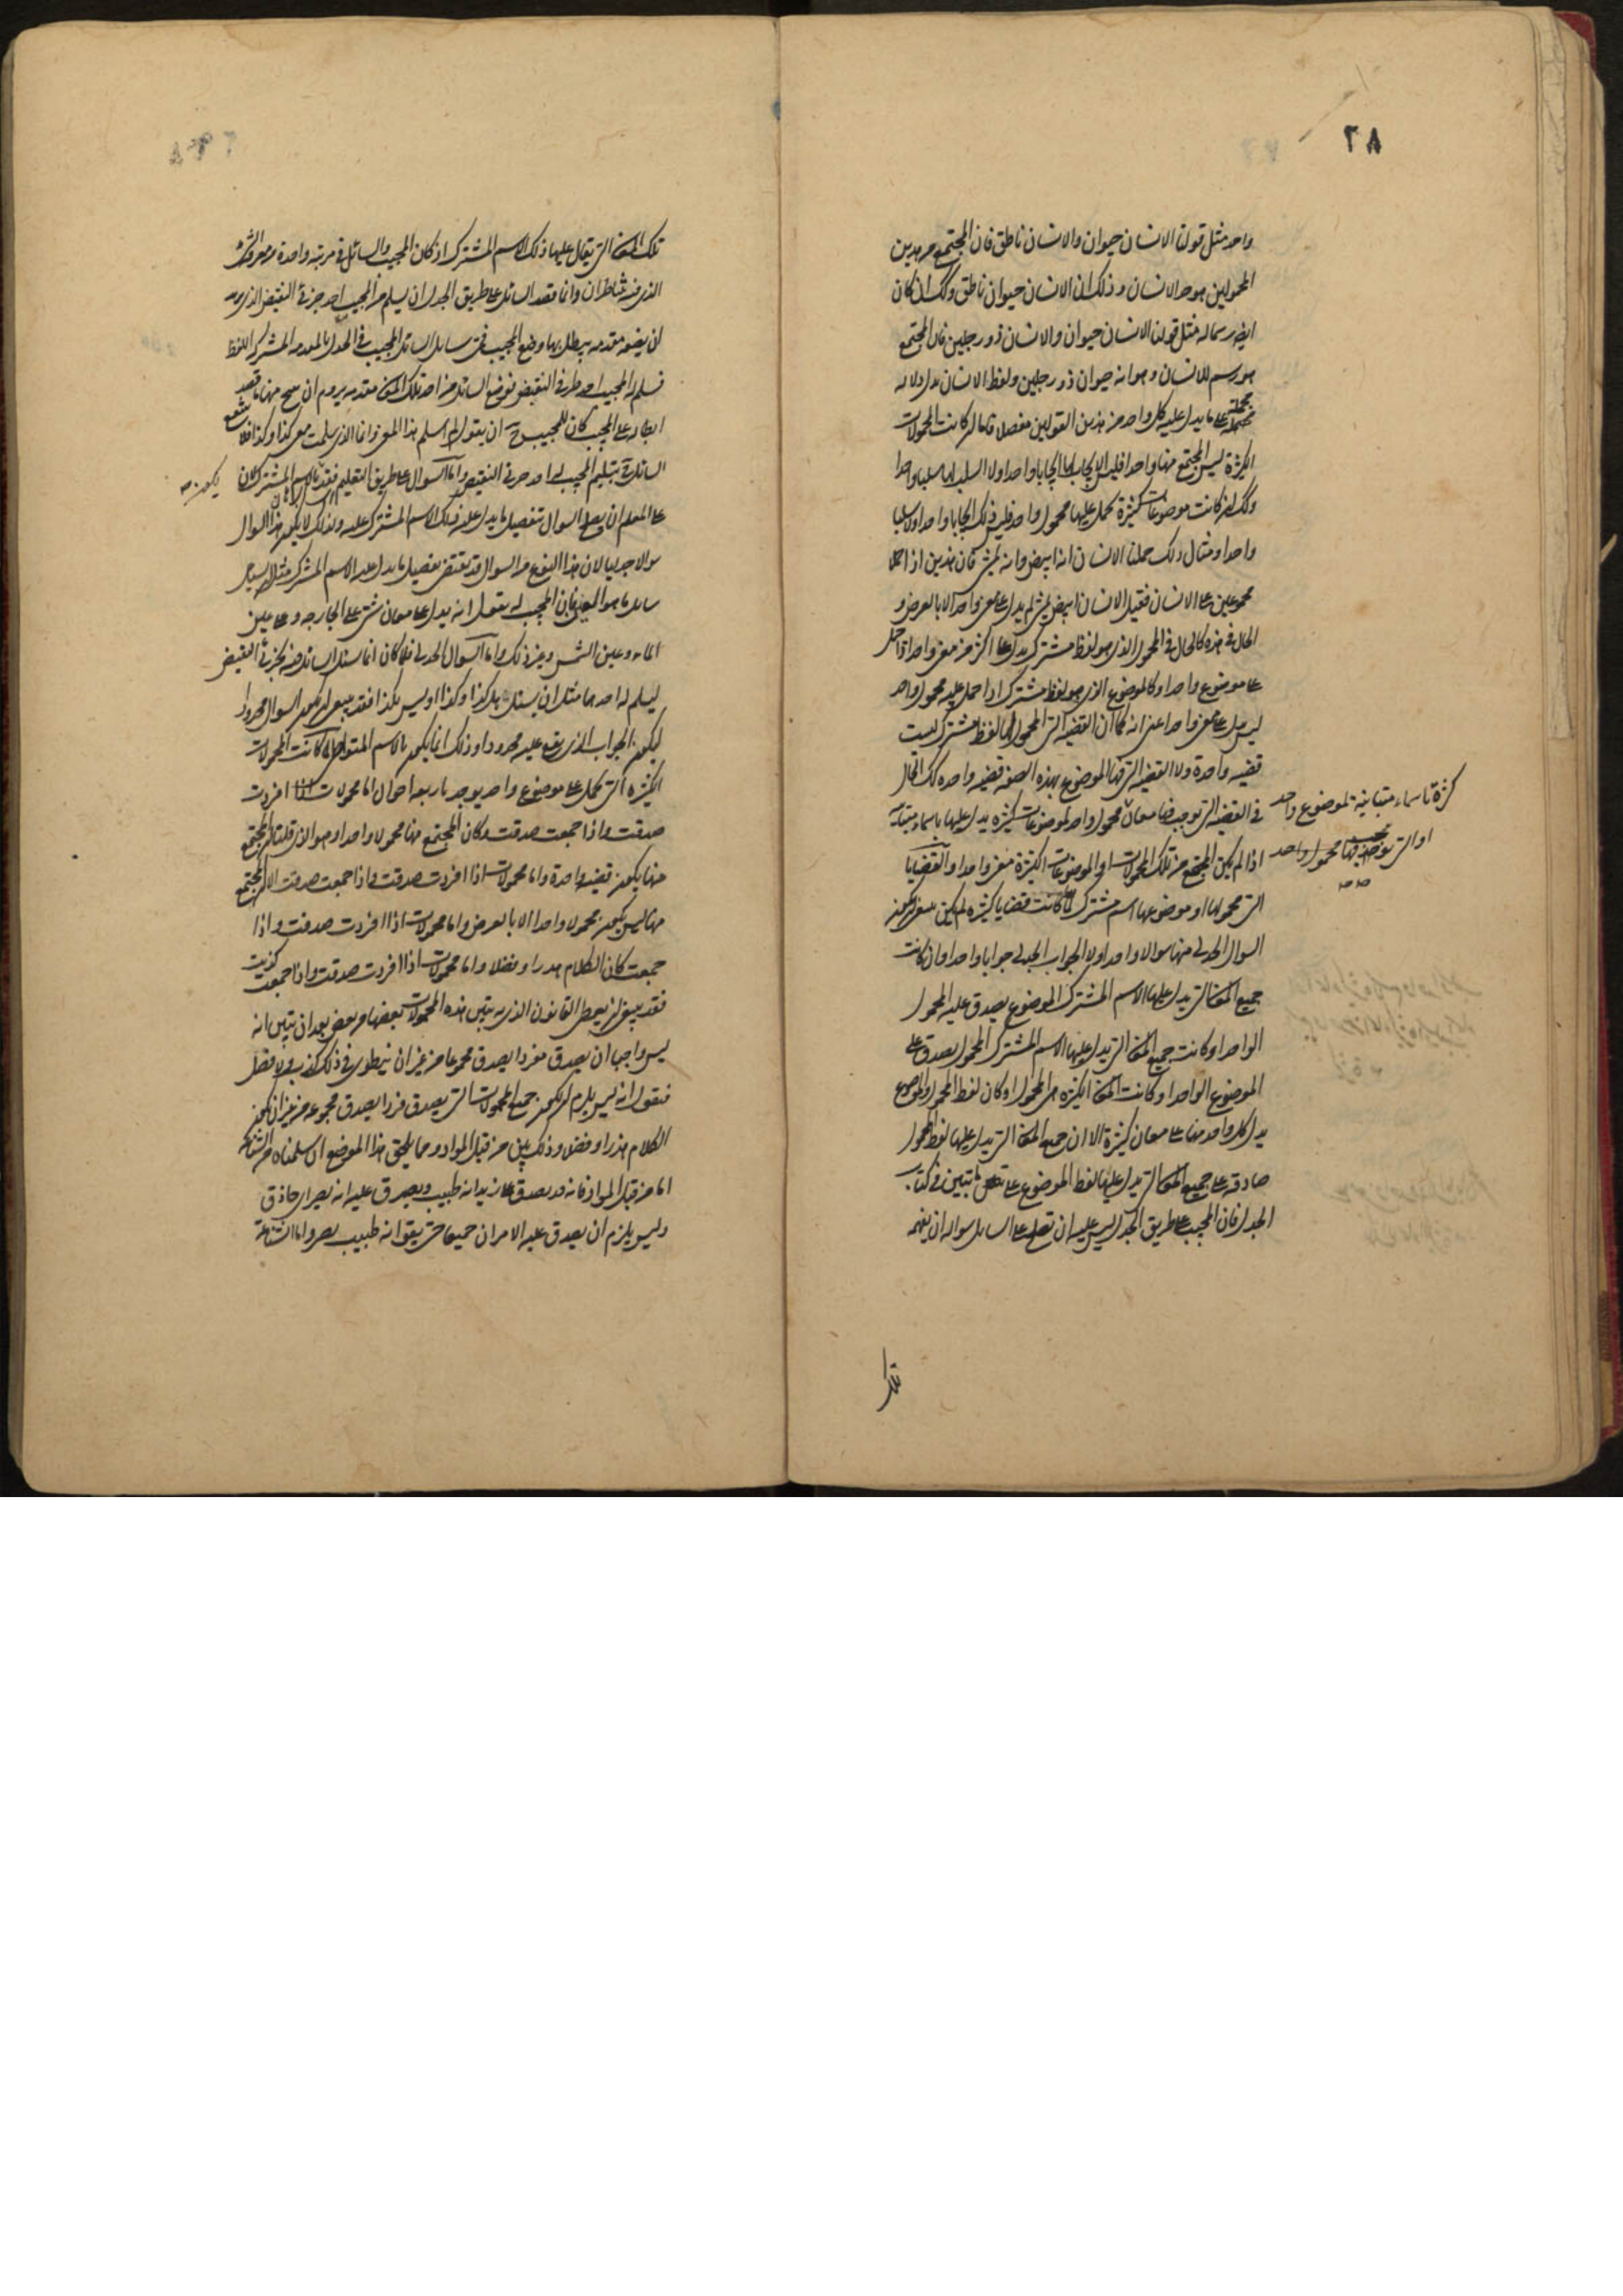 ٢٨
واحد مثل قولنا الانسان حيوان والانسان ناطق فان المجتمع من هذين
المحمولين هو حد الانسان وذلك ان الانسان حيوان ناطق وكذلك ان كان
ايضا رسما له مثل قولنا الانسان حيوان والانسان ذو رجلين فان المجتمع
هو رسم للانسان وهو انه حيوان ذو رجلين ولفظ الانسان يدل دلالة
مجملة على ما يدل عليه كل واحد من هذين القولين مفصلا فاما ان كانت المحمولات
الكثيرة ليس المجتمع منها واحدا فليس الايجاب لها ايجابا واحدا ولا السلب لها سلبا واحدا
وكذلك ان كانت موضوعات كثيرة يحمل عليها محمول واحد فليس ذلك ايجابا واحدا ولا سلبا
واحدا ومثال ذلك حملنا على الانسان انه ابيض وانه يمشي فان هذين اذا حملا
مجموعين على الانسان فقيل الانسان ابيض يمشي لم يدل على معنى واحد الا بالعرض و
الحال في هذه كالحال في المحمول الذي هو لفظ مشترك يدل على اكثر من معنى واحد اذا حمل
على موضوع واحد او كالموضوع الذي هو لفظ مشترك اذا حمل عليه محمول واحد
ليس يدل على معنى واحد اعنى انه كما ان القضية التي المحمول لها لفظ مشترك ليست
قضية واحدة ولا القضية التي فيها الموضوع بهذه الصفة قضية واحدة كذلك الحال
في القضية التي توجب فيها معان محمول واحد لموضوعات كثيرة يدل عليها باسماء متباينة
كثرة باسماء متباينة لموضوع واحد
او التي توجب فيها محمول واحد
صح
اذا لم يكن المجتمع من تلك المحمولات او الموضوعات الكثيرة معنى واحدا والقضايا
التي محمولها او موضوعها اسم مشترك لما كانت قضايا كثيرة لم يكن ينبغى ان يكون
السوال الجدلي منها سوالا واحدا ولا الجواب الجدلي جوابا واحدا وان كانت
جميع المعاني التي يدل عليها الاسم المشترك الموضوع يصدق عليه المحمول
الواحد او كانت جميع المعاني التي يدل عليها الاسم المشترك المحمول يصدق على
الموضوع الواحد او كانت المعاني الكثيرة هي المحمول او كان لفظ المحمول والموضوع
يدل كل واحد منها على معان كثيرة الا ان جميع المعاني التي يدل عليها لفظ المحمول
صادقة على جميع المعاني التي يدل عليها لفظ الموضوع على ما تبين في كتاب
الجدل فان المجيب على طريق الجدل ليس عليه ان يصلح على السايل سواله ان يفهمه
تلك
تلك المعاني التي يقال عليها ذلك الاسم المشترك اذ كان المجيب والسائل في مرتبة واحدة من معرفة الشئ
الذي فيه يتناظران وانما قصد السائل على طريق الجدل ان يسلم من المجيب احد جزئي النقيض الذي
ان يضعه مقدمة يبطل بها وضع المجيب فمتى سائل السائل المجيب في الجدل بالمقدمة المشتركة اللفظ
فسلم له المجيب احد طرفي النقيض فوضع السائل من احد تلك المعاني مقدمة يروم ان ينتج منها ما قصد
ابطاله على المجيب كان للمجيب ح ان يقول لم اسلم هذا المعنى وانما الذي سلمت معنى كذا وكذا فلا ينتفع
السائل بتسليم المجيب له احد جزئي النقيض واما السوال على طريق التعليم فقد يكون بالاسم المشترك لان
على المعلم ان يصلح السوال بتفصيل ما يدل عليه ذلك الاسم المشترك عليه ولذلك لا يكون هذا السوال
سوالا جدليا لان هذا النوع من السوال قد يقتضى تفصيل ما يدل عليه الاسم المشترك مثل ان يسئل
سائل ما هو العين فان المجيب له يقول انه يدل على معان شتى على الجارحة وعلى عين
الماء وعين الشمس وغير ذلك واما السوال الجدلي فلما كان انما يسئل السائل فيه بجزئي النقيض
ليسلم له احدهما مثل ان يسئل هل كذا كذا او ليس بكذا فقد ينبغى ان يكون السوال محدودا
ليكون الجواب الذي يقع عليه محدودا وذلك انما يكون بالاسم المتواطئ ولما كانت المحمولات
الكثيرة التي تحمل على موضوع واحد يوجد باربعة احوال اما محمولات اذا افردت
صدقت واذا جمعت صدقت وكان المجتمع منها محمولا واحدا وهو الذي قلنا ان المجتمع
منها يكون قضية واحدة واما محمولات اذا افردت صدقت واذا جمعت صدقت الا ان المجتمع
منها ليس يكون محمولا واحدا الا بالعرض واما محمولات اذا افردت صدقت واذا
جمعت كان الكلام هذرا وفضلا واما محمولات اذا افردت صدقت واذا جمعت كذبت
فقد ينبغى ان يعطى القانون الذي به يتبين هذه المحمولات بعضها من بعض بعد ان يتبين انه
ليس واجبا ان يصدق مفردا يصدق مجموعا من غير ان ينطوى في ذلك كذب ولا فضل
فنقول انه ليس يلزم ان يكون جميع المحمولات التي يصدق فرادا يصدق مجموعة من غير ان يكون
الكلام هذرا وفضلا وذلك بين من قبل المواد ومما يلحق هذا الموضع ان سلمناه من الشناعة
اما من قبل المواد فانه قد يصدق على زيد انه طبيب ويصدق عليه انه بصير اى حاذق
وليس يلزم ان يصدق عليه الامران جميعا حتى يقق انه طبيب بصير واما الشناعة